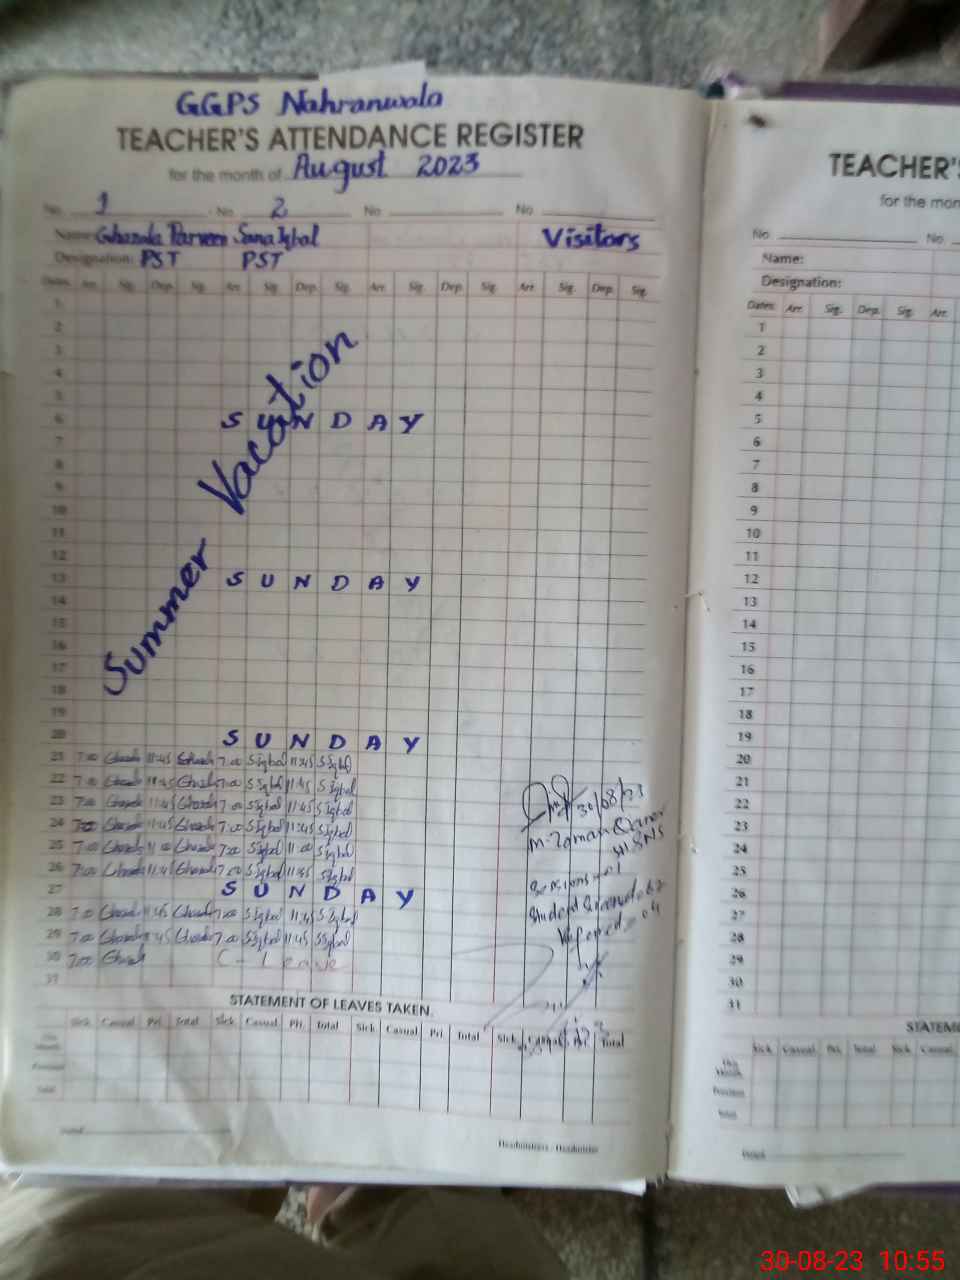 GGPS Nahranwala
TEACHER'S ATTENDANCE REGISTER
for the month of August 2023
No. 1 No. 2 No. No.
Name: Ghazala Parveen Sana Iqbal Visitors
Designation: PST PST
Dates Arr. Sig. Dep. Sig. Arr. Sig. Dep. Sig. Arr. Sig. Dep. Sig. Arr. Sig. Dep. Sig.
1
2
3
4
5
6 SUNDAY
7
8
9
10
11
12
13 SUNDAY
14
15
16
17
18
19
20 SUNDAY
Summer Vacation
21 7:00 Ghazala 11:45 Ghazala 7:00 S Iqbal 11:45 S Iqbal
22 7:00 Ghazala 11:45 Ghazala 7:00 S Iqbal 11:45 S Iqbal
23 7:00 Ghazala 11:45 Ghazala 7:00 S Iqbal 11:45 S Iqbal
24 7:00 Ghazala 11:45 Ghazala 7:00 S Iqbal 11:45 S Iqbal
25 7:00 Ghazala 11:00 Ghazala 7:00 S Iqbal 11:00 S Iqbal
26 7:00 Ghazala 11:45 Ghazala 7:00 S Iqbal 11:45 S Iqbal
27 SUNDAY
28 7:00 Ghazala 11:45 Ghazala 7:00 S Iqbal 11:45 S Iqbal
29 7:00 Ghazala 11:45 Ghazala 7:00 S Iqbal 11:45 S Iqbal
30 7:00 Ghazala C - Leave
31
30/08/23
STATEMENT OF LEAVES TAKEN.
Sick Casual Pri. Total Sick Casual Pri. Total Sick Casual Pri. Total Sick Casual Pri. Total
This Month
Previous
Total
Headmistress / Headmaster
TEACHER'S
for the mon
No. No.
Name:
Designation:
Dates Arr. Sig. Dep. Sig. Arr.
1
2
3
4
5
6
7
8
9
10
11
12
13
14
15
16
17
18
19
20
21
22
23
24
25
26
27
28
29
30
31
STATEME
Sick Casual Pri. Total Sick Casual
This Month
Previous
Total
30-08-23 10:55